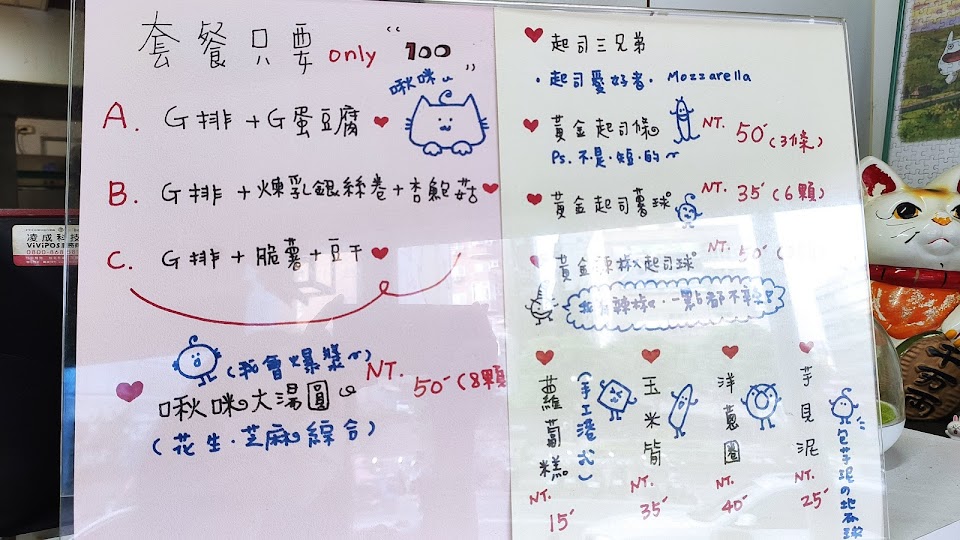 套餐只要 only “100”
啾咪
A. G排+G蛋豆腐
B. G排+煉乳銀絲卷+杏鮑菇
C. G排+脆薯+豆干
(我會爆漿~)
啾咪大湯圓 NT. 50(8顆
(花生.芝麻綜合)
起司三兄弟
.起司愛好者. Mozzarella
黃金起司條 NT. 50(3條)
Ps.不是.短.的~
黃金起司薯球 NT. 35(6顆)
黃金 起司球 NT. 50
辣椒 一點都不
蘿蔔糕
(手工港式)
NT. 15
玉米筒
NT. 35
洋蔥圈
NT. 40
芋見泥
NT. 25
包芋泥の地瓜球
凌成科技
ViViPOS
0800-868